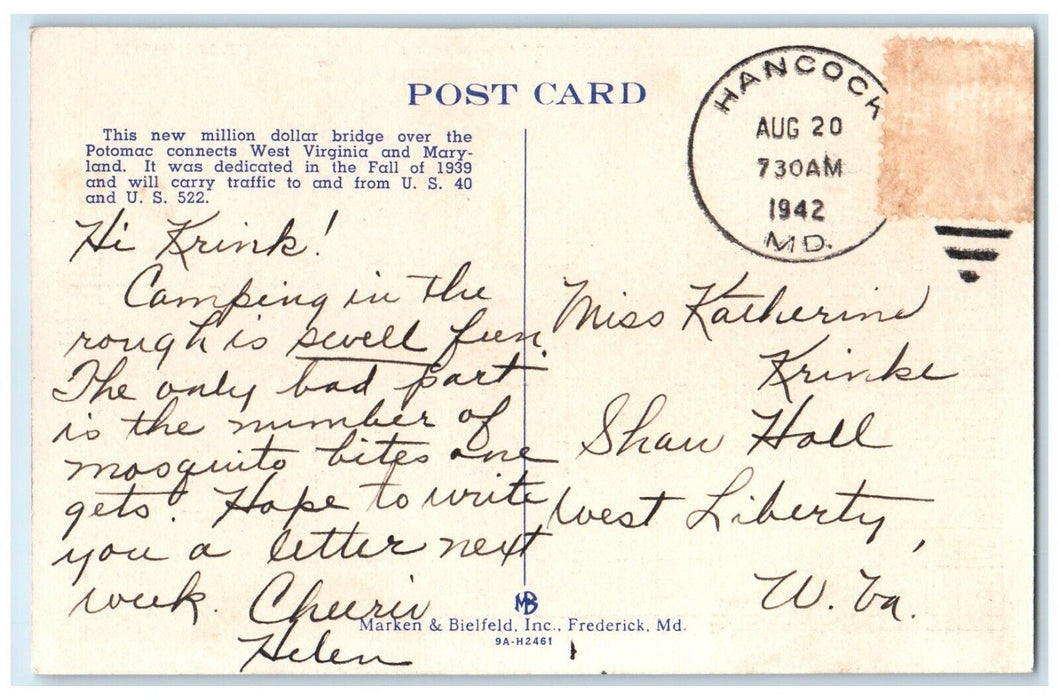 POST CARD
HANCOCK
AUG 20
730AM
1942
MD.
This new million dollar bridge over the
Potomac connects West Virginia and Mary-
land. It was dedicated in the Fall of 1939
and will carry traffic to and from U. S. 40
and U. S. 522.
Hi Krink!
Camping in the
rough is swell fun.
The only bad part
is the number of
mosquito bites one
gets! Hope to write
you a letter next
week. Cheerio
Helen
Miss Katherine
Krinke
Shaw Hall
West Liberty,
W. Va.
MB
Marken & Bielfeld, Inc., Frederick, Md.
9A-H2461